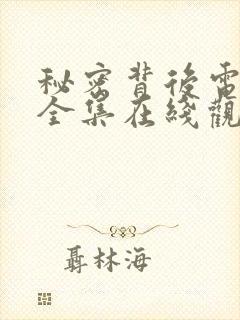 秘密背後電
全集在綫觀
聶林海